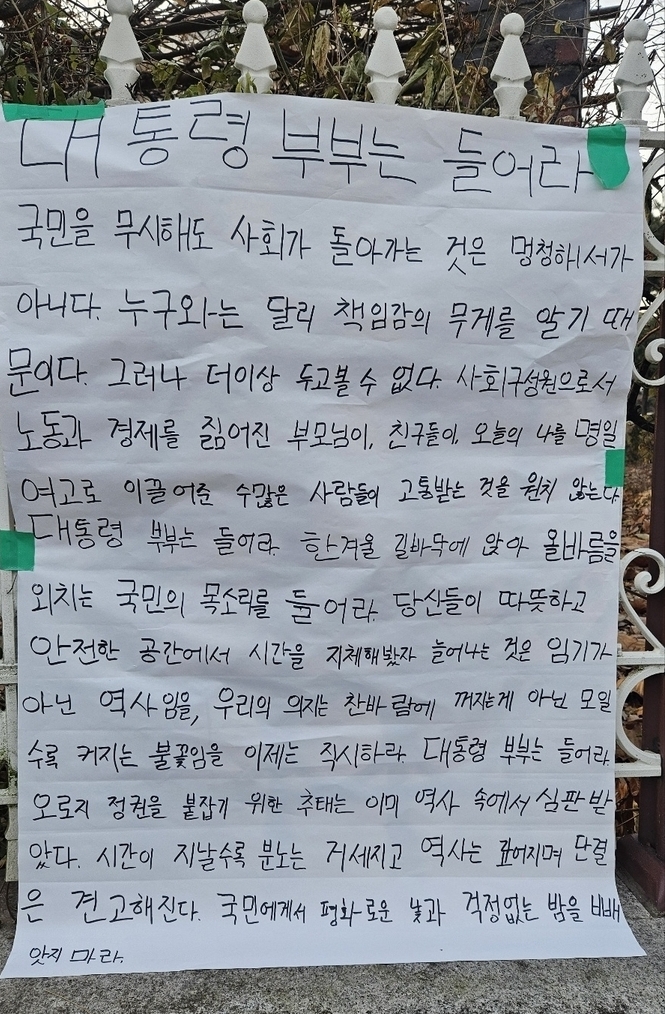 대통령 부부는 들어라
국민을 무시해도 사회가 돌아가는 것은 멍청해서가
아니다. 누구와는 달리 책임감의 무게를 알기 때
문이다. 그러나 더이상 두고볼 수 없다. 사회구성원으로서
노동과 경제를 짊어진 부모님이, 친구들이, 오늘의 나를 명일
여고로 이끌어준 수많은 사람들이 고통받는 것을 원치 않는다
대통령 부부는 들어라. 한겨울 길바닥에 앉아 올바름을
외치는 국민의 목소리를 들어라. 당신들이 따뜻하고
안전한 공간에서 시간을 지체해봤자 늘어나는 것은 임기가
아닌 역사임을, 우리의 의지는 찬바람에 꺼지는게 아닌 모일
수록 커지는 불꽃임을 이제는 직시하라. 대통령 부부는 들어라
오로지 정권을 붙잡기 위한 추태는 이미 역사 속에서 심판받
았다. 시간이 지날수록 분노는 거세지고 역사는 깊어지며 단결
은 견고해진다. 국민에게서 평화로운 낮과 걱정없는 밤을 빼
앗지 마라.